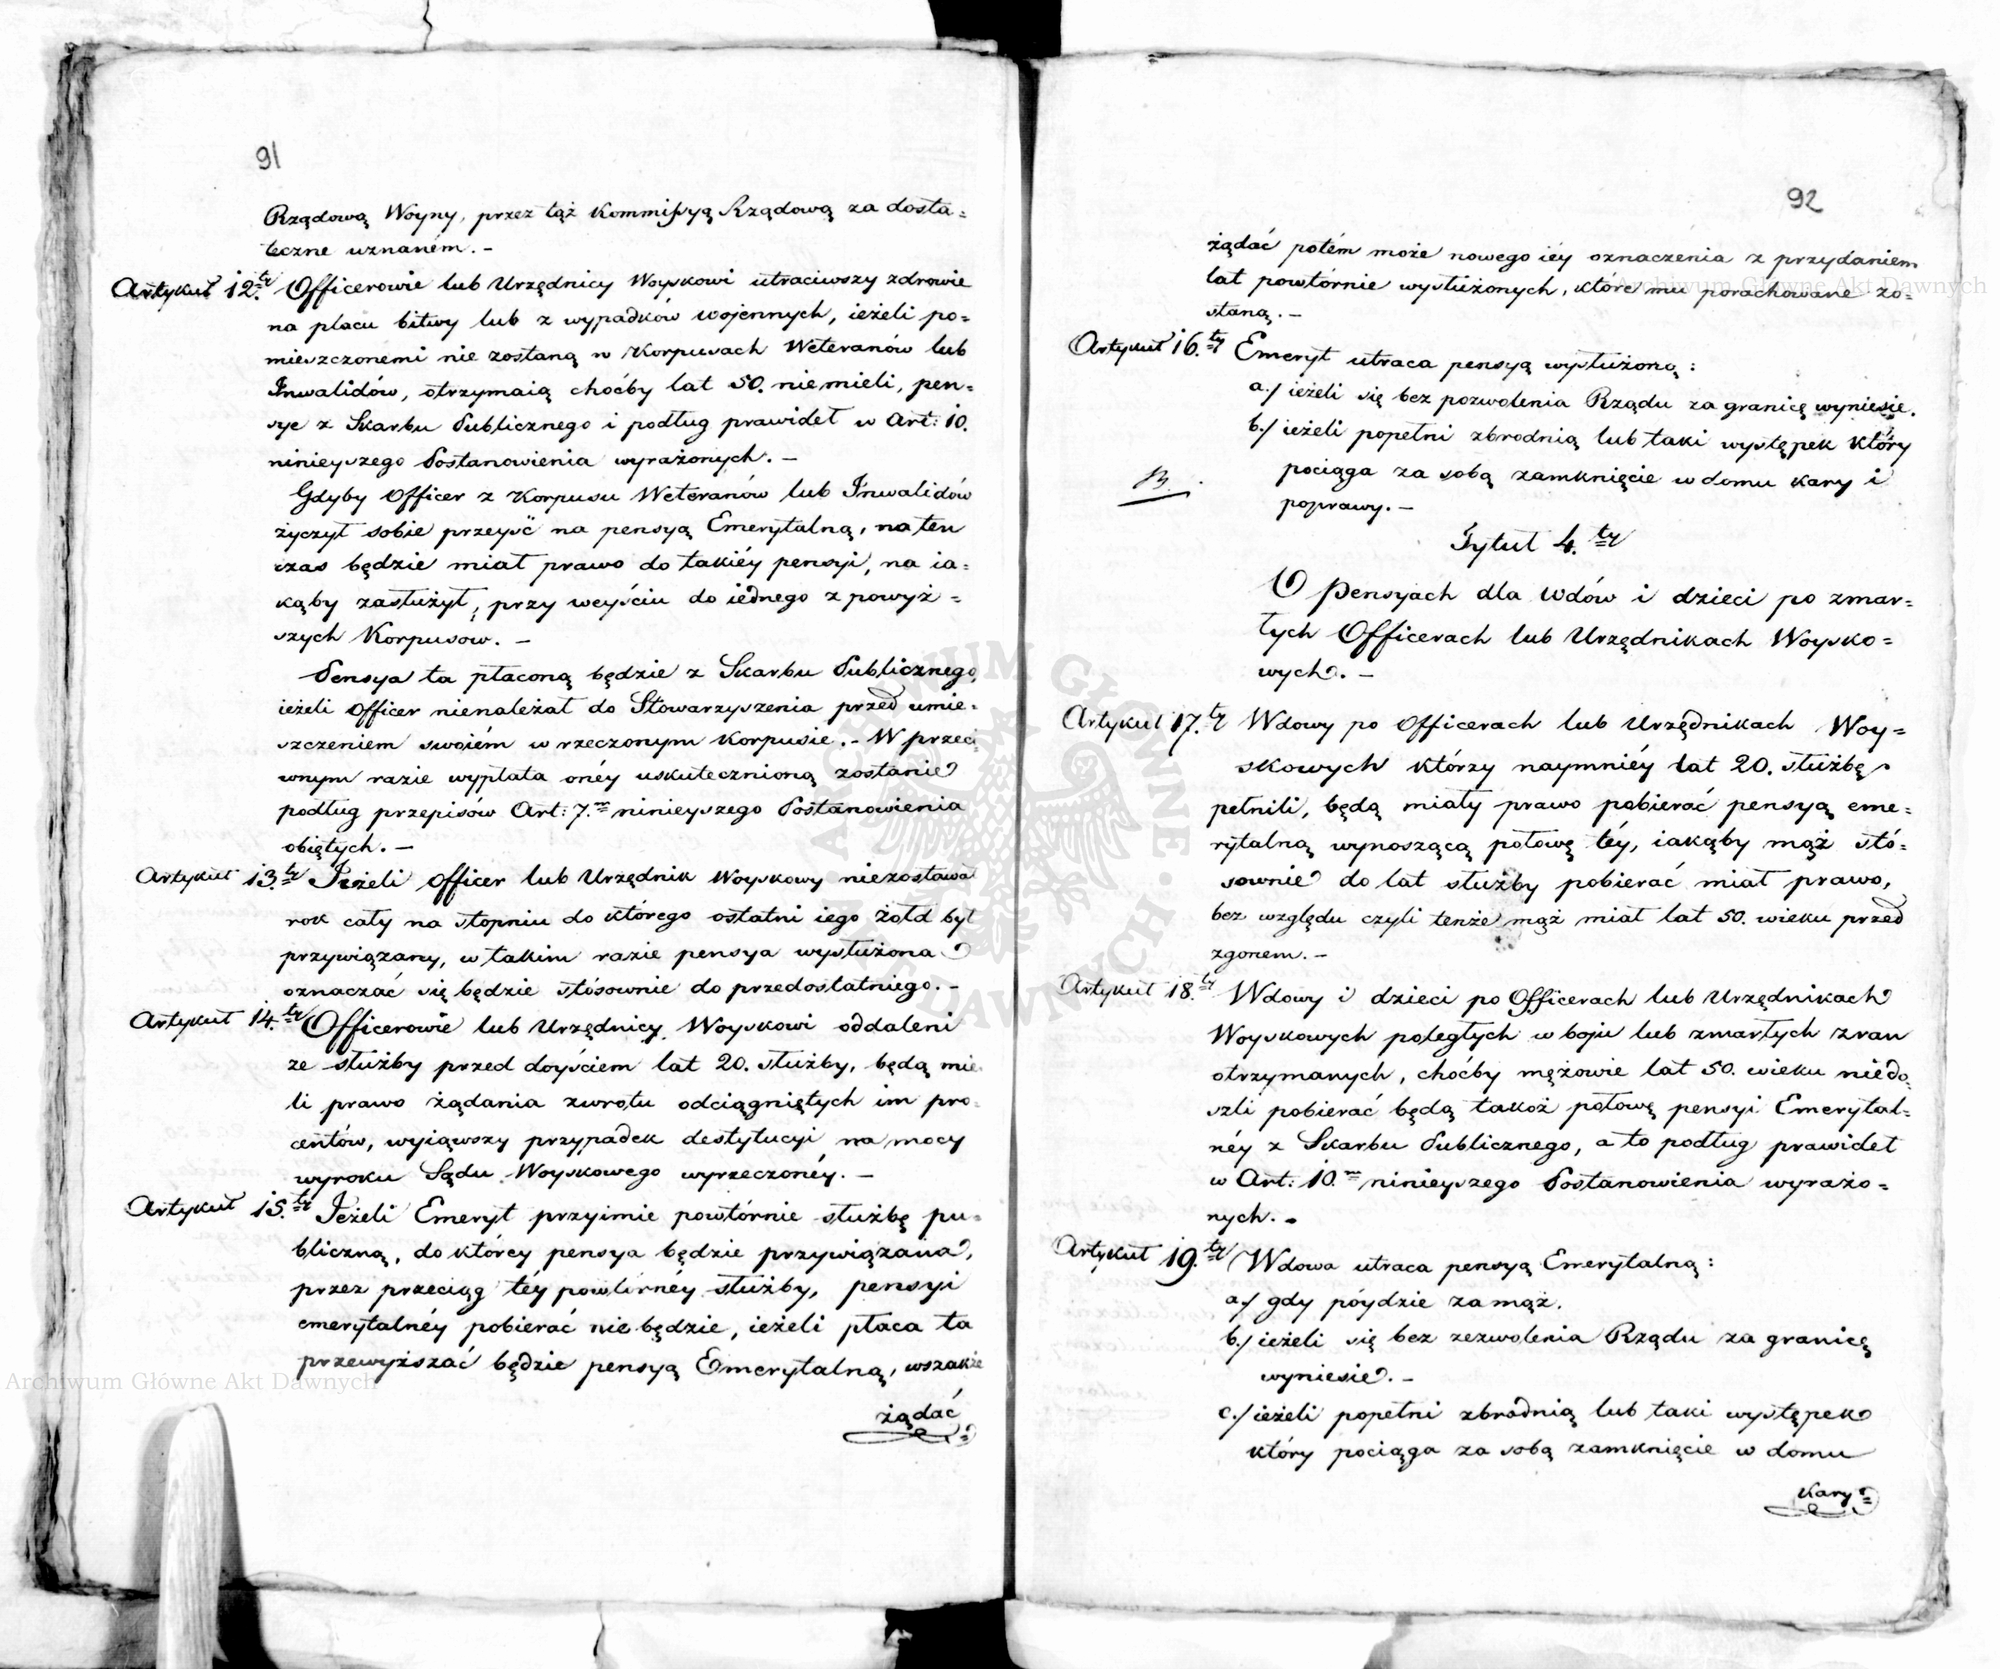 91
Rządową Woyny, przez tąż Kommissyą Rządową za dosta=
teczne uznaném. –
Artykuł 12.ty Officerowie lub Urzędnicy Woyskowi utraciwszy zdrowie
na placu bitwy lub z wypadków wojennych, ieżeli po=
mieszczonemi nie zostaną w Korpusach Weteranów lub
Inwalidów, otrzymaią choćby lat 50. niemieli, pen=
sye z Skarbu Publicznego i podług prawideł w Art: 10.
ninieyszego Postanowienia wyrażonych. –
Gdyby Officer z Korpusu Weteranów lub Inwalidów
życzył sobie przeyść na pensyą Emerytalną, na ten
czas będzie miał prawo do takiéy pensyi, na ia=
kąby zasłużył, przy weyściu do iednego z powyż=
szych Korpusow. –
Pensya ta płaconą będzie z Skarbu Publicznego,
ieżeli Officer nienależał do Stowarzyszenia przed umie=
szczeniem swoiém w rzeczonym Korpusie. – W przeci
wnym razie wypłata onéy uskutecznioną zostanie
podług przepisów Art: 7.m ninieyszego Postanowienia
obiętych. –
Artykuł 13.ty Jeżeli Officer lub Urzędnik Woyskowy niezostawał
rok cały na stopniu do którego ostatni iego żołd był
przywiązany, w takim razie pensya wysłużona
oznaczać się będzie stósownie do przedostatniego. –
Artykuł 14.ty Officerowie lub Urzędnicy Woyskowi oddaleni
ze służby przed doyściem lat 20. służby, będą mie
li prawo żądania zwrotu odciągniętych im pro=
centów, wyiąwszy przypadek destytucyi na mocy
wyroku Sądu Woyskowego wyrzeczonéy. –
Artykuł 15.ty Jeżeli Emeryt przyimie powtórnie służbę pu=
bliczną, do którey pensya będzie przywiązana,
przez przeciąg téy powtórnéy służby, pensyi
emerytalnéy pobierać nie będzie, ieżeli płaca ta
przewyższać będzie pensyą Emerytalną, wszakże
żądać
92
żądać potém może nowego iéy oznaczenia z przydaniem
lat powtórnie wysłużonych, które mu porachowane zo=
staną. –
Artykuł 16.ty Emeryt utraca pensyą wysłużoną:
a./ ieżeli się bez pozwolenia Rządu za granicę wyniesie.
b./ ieżeli popełni zbrodnią lub taki występek który
pociąga za sobą zamknięcie w domu kary i
poprawy. –
Tytuł 4.ty
O Pensyach dla Wdów i dzieci po zmar=
łych Officerach lub Urzędnikach Woysko=
wych. –
Artykuł 17.ty Wdowy po Officerach lub Urzędnikach Woy=
skowych którzy naymniéy lat 20. służbę
pełnili, będą miały prawo pobierać pensyą eme=
rytalną wynoszącą połowę téy, iakąby mąż stó=
sownie do lat służby pobierać miał prawo,
bez względu czyli tenże mąż miał lat 50. wieku przed
zgonem. –
Artykuł 18.ty Wdowy i dzieci po Officerach lub Urzędnikach
Woyskowych poległych w boju lub zmarłych z ran
otrzymanych, choćby mężowie lat 50. wieku niedo=
szli pobierać będą takoż połowę pensyi Emerytal=
néy z Skarbu Publicznego, a to podług prawideł
w Art: 10.m ninieyszego Postanowienia wyrażo=
nych. –
Artykuł 19.ty Wdowa utraca pensyą Emerytalną:
a./ gdy póydzie za mąż.
b./ ieżeli się bez zezwolenia Rządu za granicę
wyniesie. –
c./ ieżeli popełni zbrodnią lub taki występek
który pociąga za sobą zamknięcie w domu
kary
Archiwum Główne Akt Dawnych
Archiwum Główne Akt Dawnych
ARCHIWUM GŁÓWNE AKT DAWNYCH